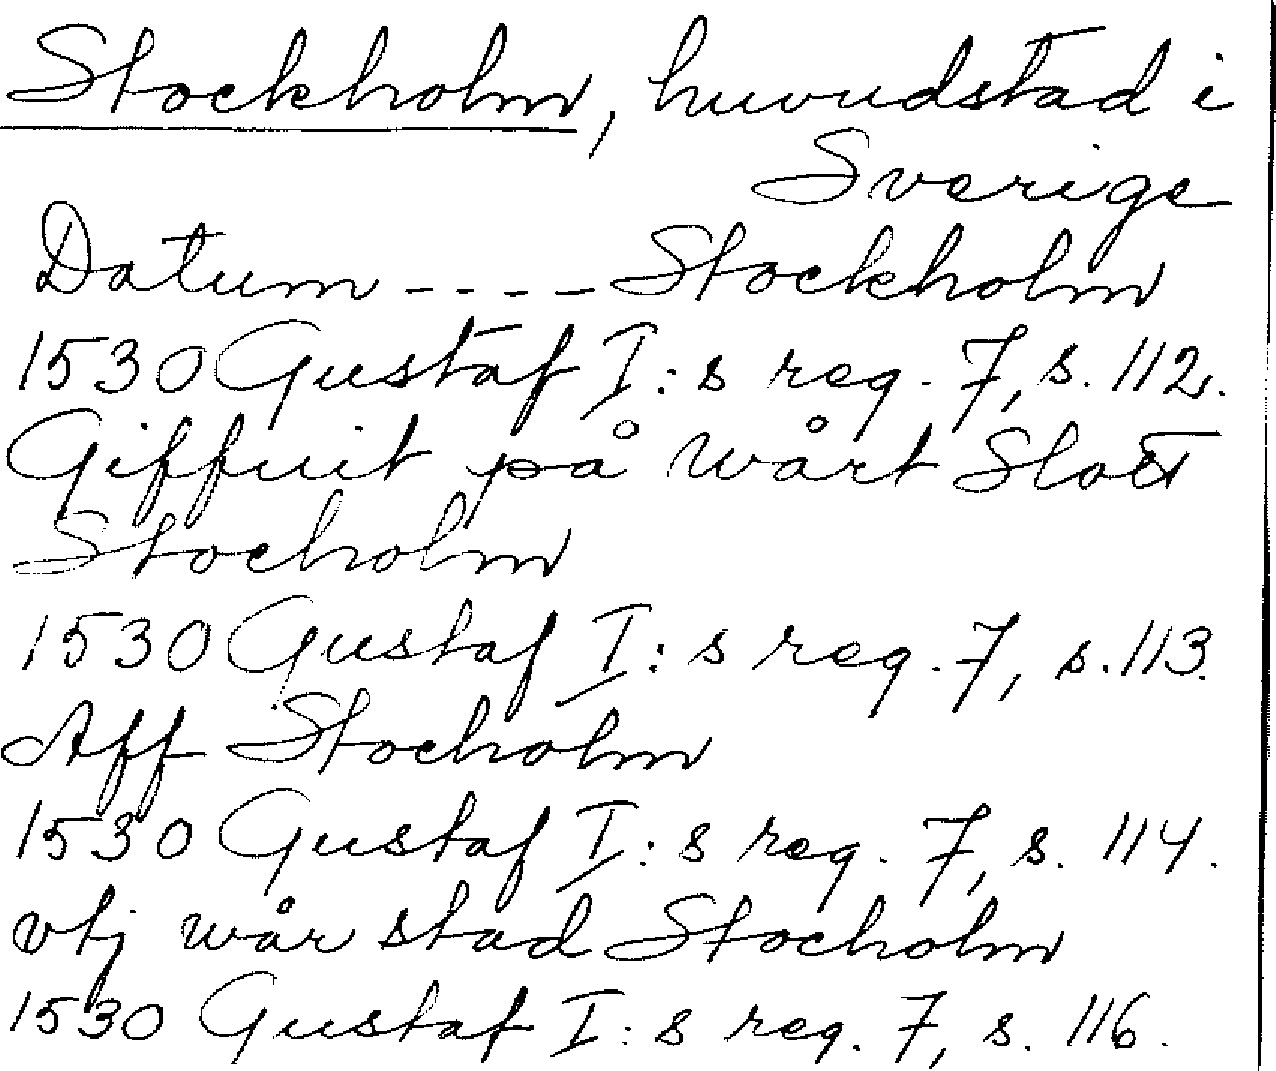 Stockholm, huvudstad i
Sverige
Datum - - - - Stockholm
1530 Gustaf I:s reg. 7, s. 112.
Giffuit på wårt Slott
Stocholm
1530 Gustaf I:s reg. 7, s. 113.
Aff Stocholm
1530 Gustaf I:s reg. 7, s. 114.
vtj wår stad Stocholm
1530 Gustaf I:s reg. 7, s. 116.